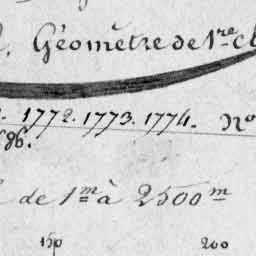 Géometre de 1re cl
1772. 1773. 1774. No
de 1m à 2500m
150 200